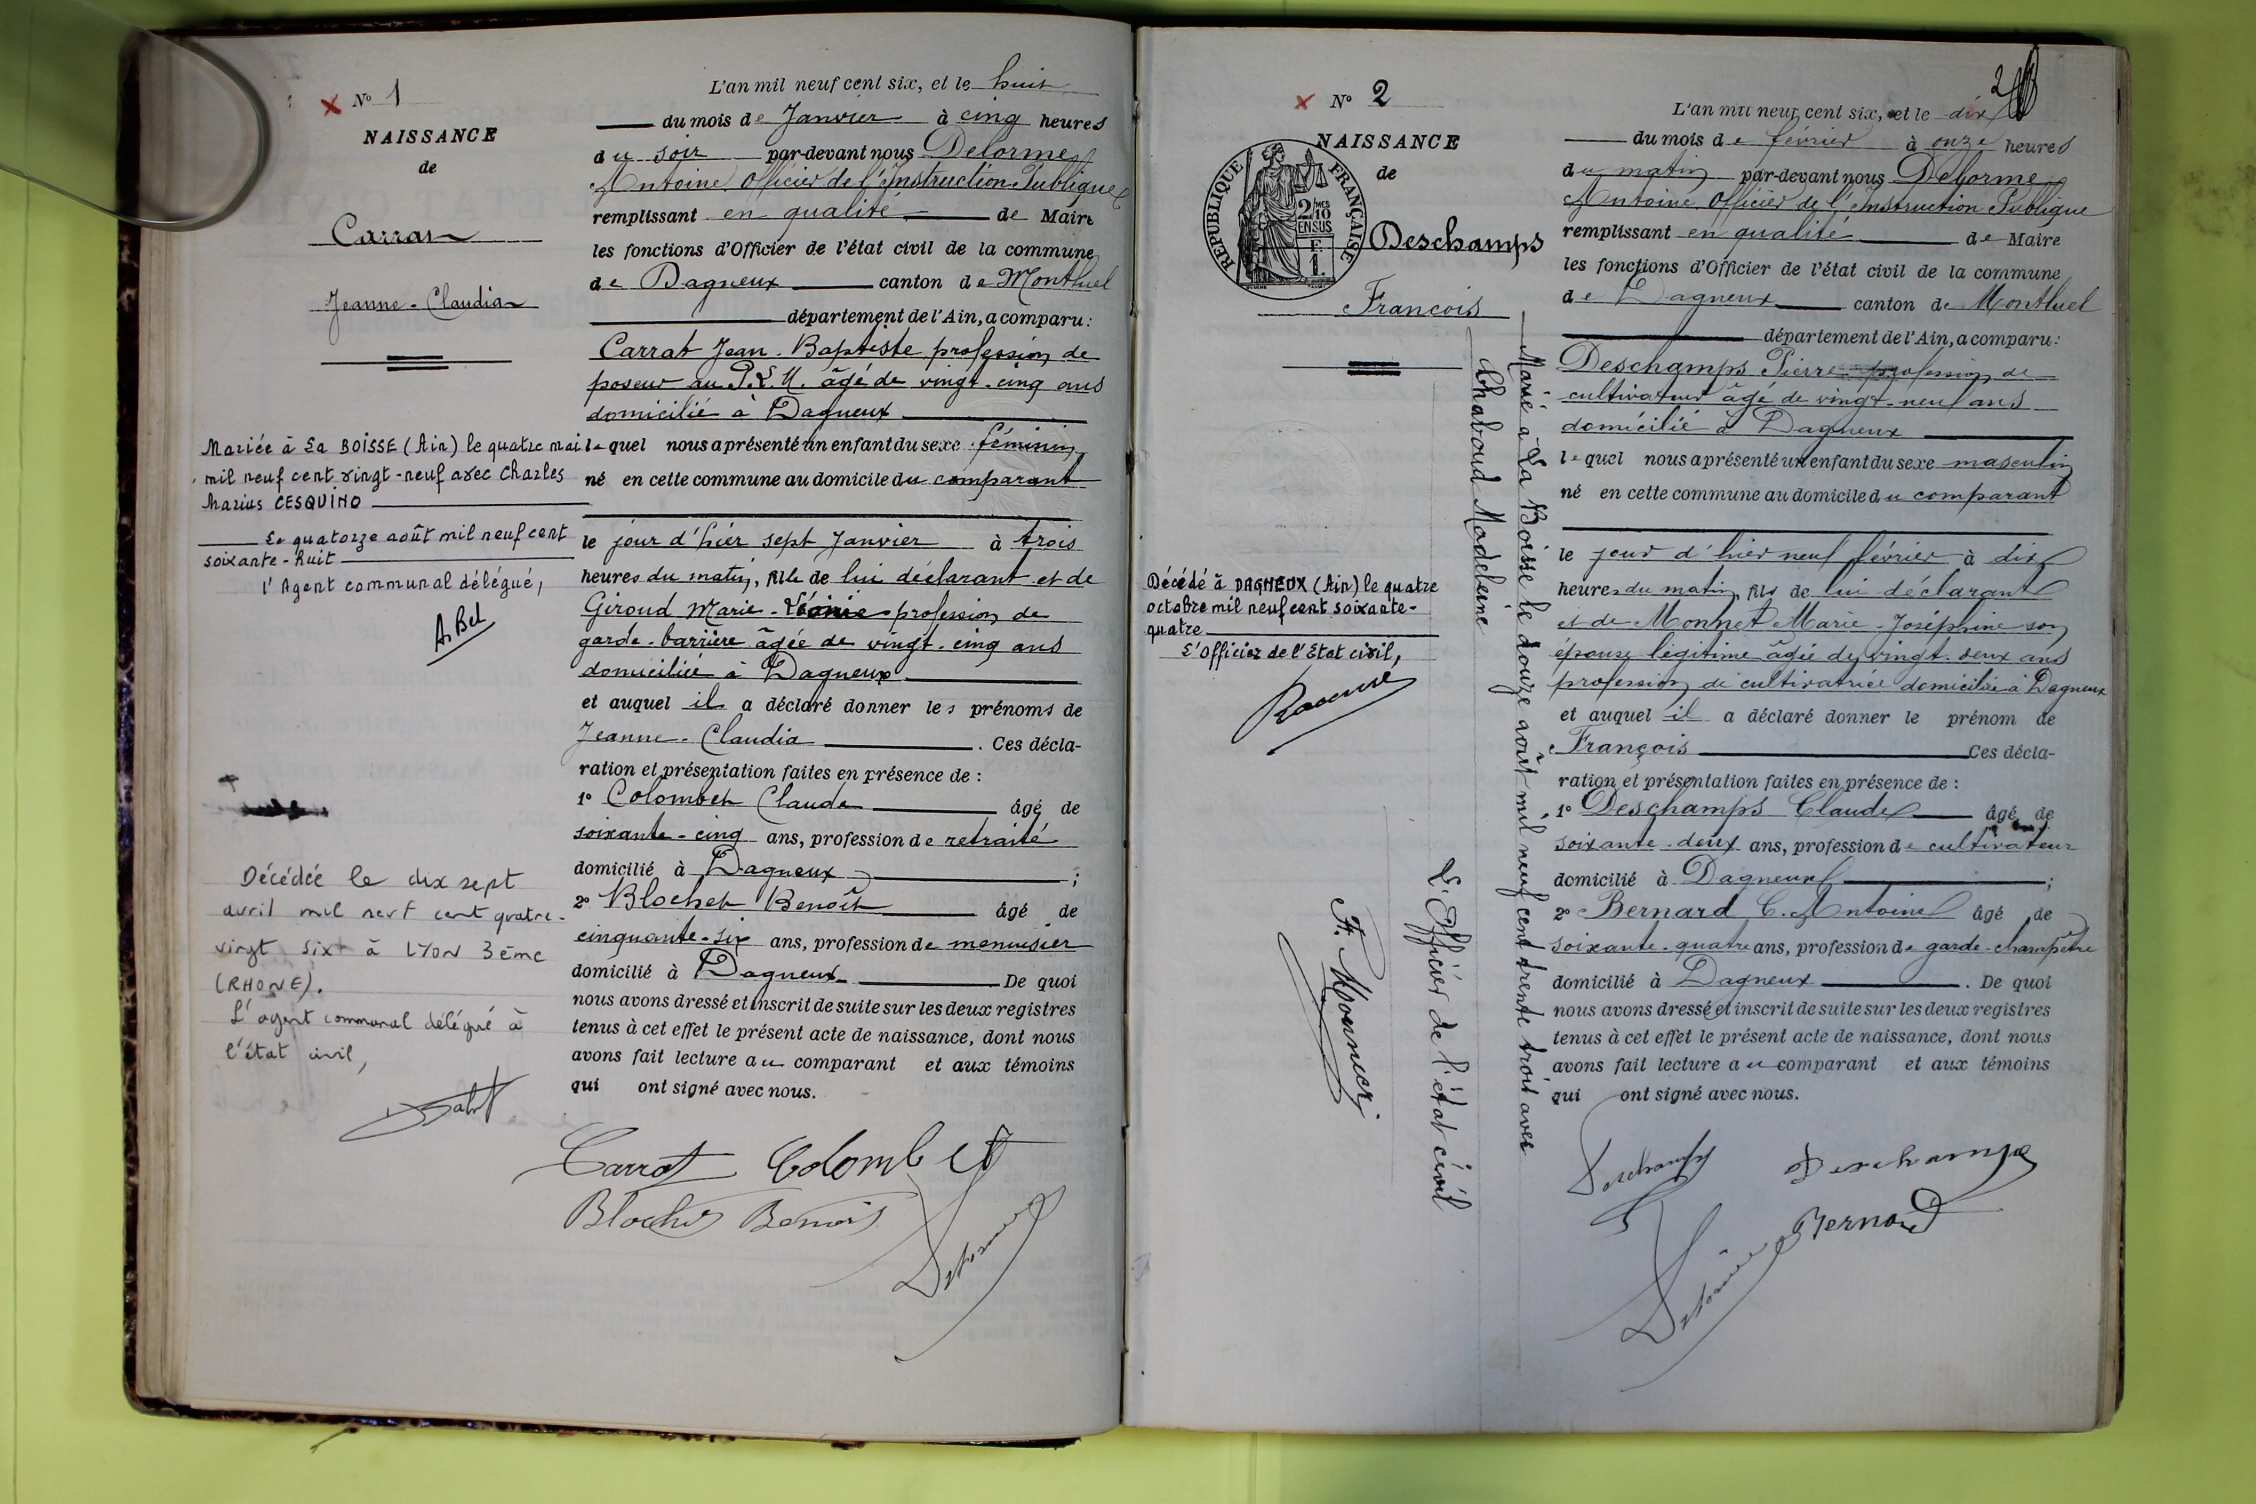 N° 1
NAISSANCE
de
Carrat
Jeanne-Claudia
Mariée à La BOISSE (Ain) le quatre mai
mil neuf cent vingt-neuf avec Charles
Marius CESQUINO
Le quatorze août mil neuf cent
soixante-huit
l'Agent communal délégué,
Décédée le dix sept
avril mil neuf cent quatre-
vingt six à LYON 3ème
(RHONE).
L'agent communal délégué à
l'état civil,
L'an mil neuf cent six, et le huit
du mois de Janvier à cinq heures
du soir par-devant nous Delorme
Antoine, Officier de l'Instruction Publique
remplissant en qualité de Maire
les fonctions d'Officier de l'état civil de la commune
de Dagneux canton de Montluel
département de l'Ain, a comparu :
Carrat Jean-Baptiste profession de
poseur au P.L.M. âgé de vingt-cinq ans
domicilié à Dagneux
lequel nous a présenté un enfant du sexe féminin
né en cette commune au domicile du comparant
le jour d'hier sept Janvier à trois
heures du matin, fille de lui déclarant et de
Giroud Marie- profession de
garde-barrière âgée de vingt-cinq ans
domiciliée à Dagneux
et auquel il a déclaré donner les prénoms de
Jeanne-Claudia . Ces décla-
ration et présentation faites en présence de :
1° Colombet Claude âgé de
soixante-cinq ans, profession de retraité
domicilié à Dagneux ;
2° Blochet Benoît âgé de
cinquante-six ans, profession de menuisier
domicilié à Dagneux De quoi
nous avons dressé et inscrit de suite sur les deux registres
tenus à cet effet le présent acte de naissance, dont nous
avons fait lecture au comparant et aux témoins
qui ont signé avec nous.
Carrat Colombet
Blochet Benoit
Delorme
2
N° 2
NAISSANCE
de
RÉPUBLIQUE FRANÇAISE
2/10
EN SUS
F.
1.
Deschamps
François
Marié à La Boisse le douze août mil neuf cent trente trois avec
Chaboud Madeleine
L'Officier de l'état civil
Décédé à DAGNEUX (Ain) le quatre
octobre mil neuf cent soixante-
quatre
L'Officier de l'Etat civil,
L'an mil neuf cent six, et le dix
du mois de février à onze heures
du matin par-devant nous Delorme
Antoine, Officier de l'Instruction Publique
remplissant en qualité de Maire
les fonctions d'Officier de l'état civil de la commune
de Dagneux canton de Montluel
département de l'Ain, a comparu :
Deschamps Pierre profession de
cultivateur âgé de vingt-neuf ans
domicilié à Dagneux
lequel nous a présenté un enfant du sexe masculin
né en cette commune au domicile du comparant
le jour d'hier neuf février à dix
heures du matin, fils de lui déclarant
et de Monnet Marie-Joséphine son
épouse légitime âgée de vingt-deux ans
profession de cultivatrice domiciliée à Dagneux
et auquel il a déclaré donner le prénom de
François Ces décla-
ration et présentation faites en présence de :
1° Deschamps Claude âgé de
soixante-deux ans, profession de cultivateur
domicilié à Dagneux ;
2° Bernard C. Antoine âgé de
soixante-quatre ans, profession de garde-champêtre
domicilié à Dagneux . De quoi
nous avons dressé et inscrit de suite sur les deux registres
tenus à cet effet le présent acte de naissance, dont nous
avons fait lecture au comparant et aux témoins
qui ont signé avec nous.
Deschamps Deschamps
Bernard
Delorme